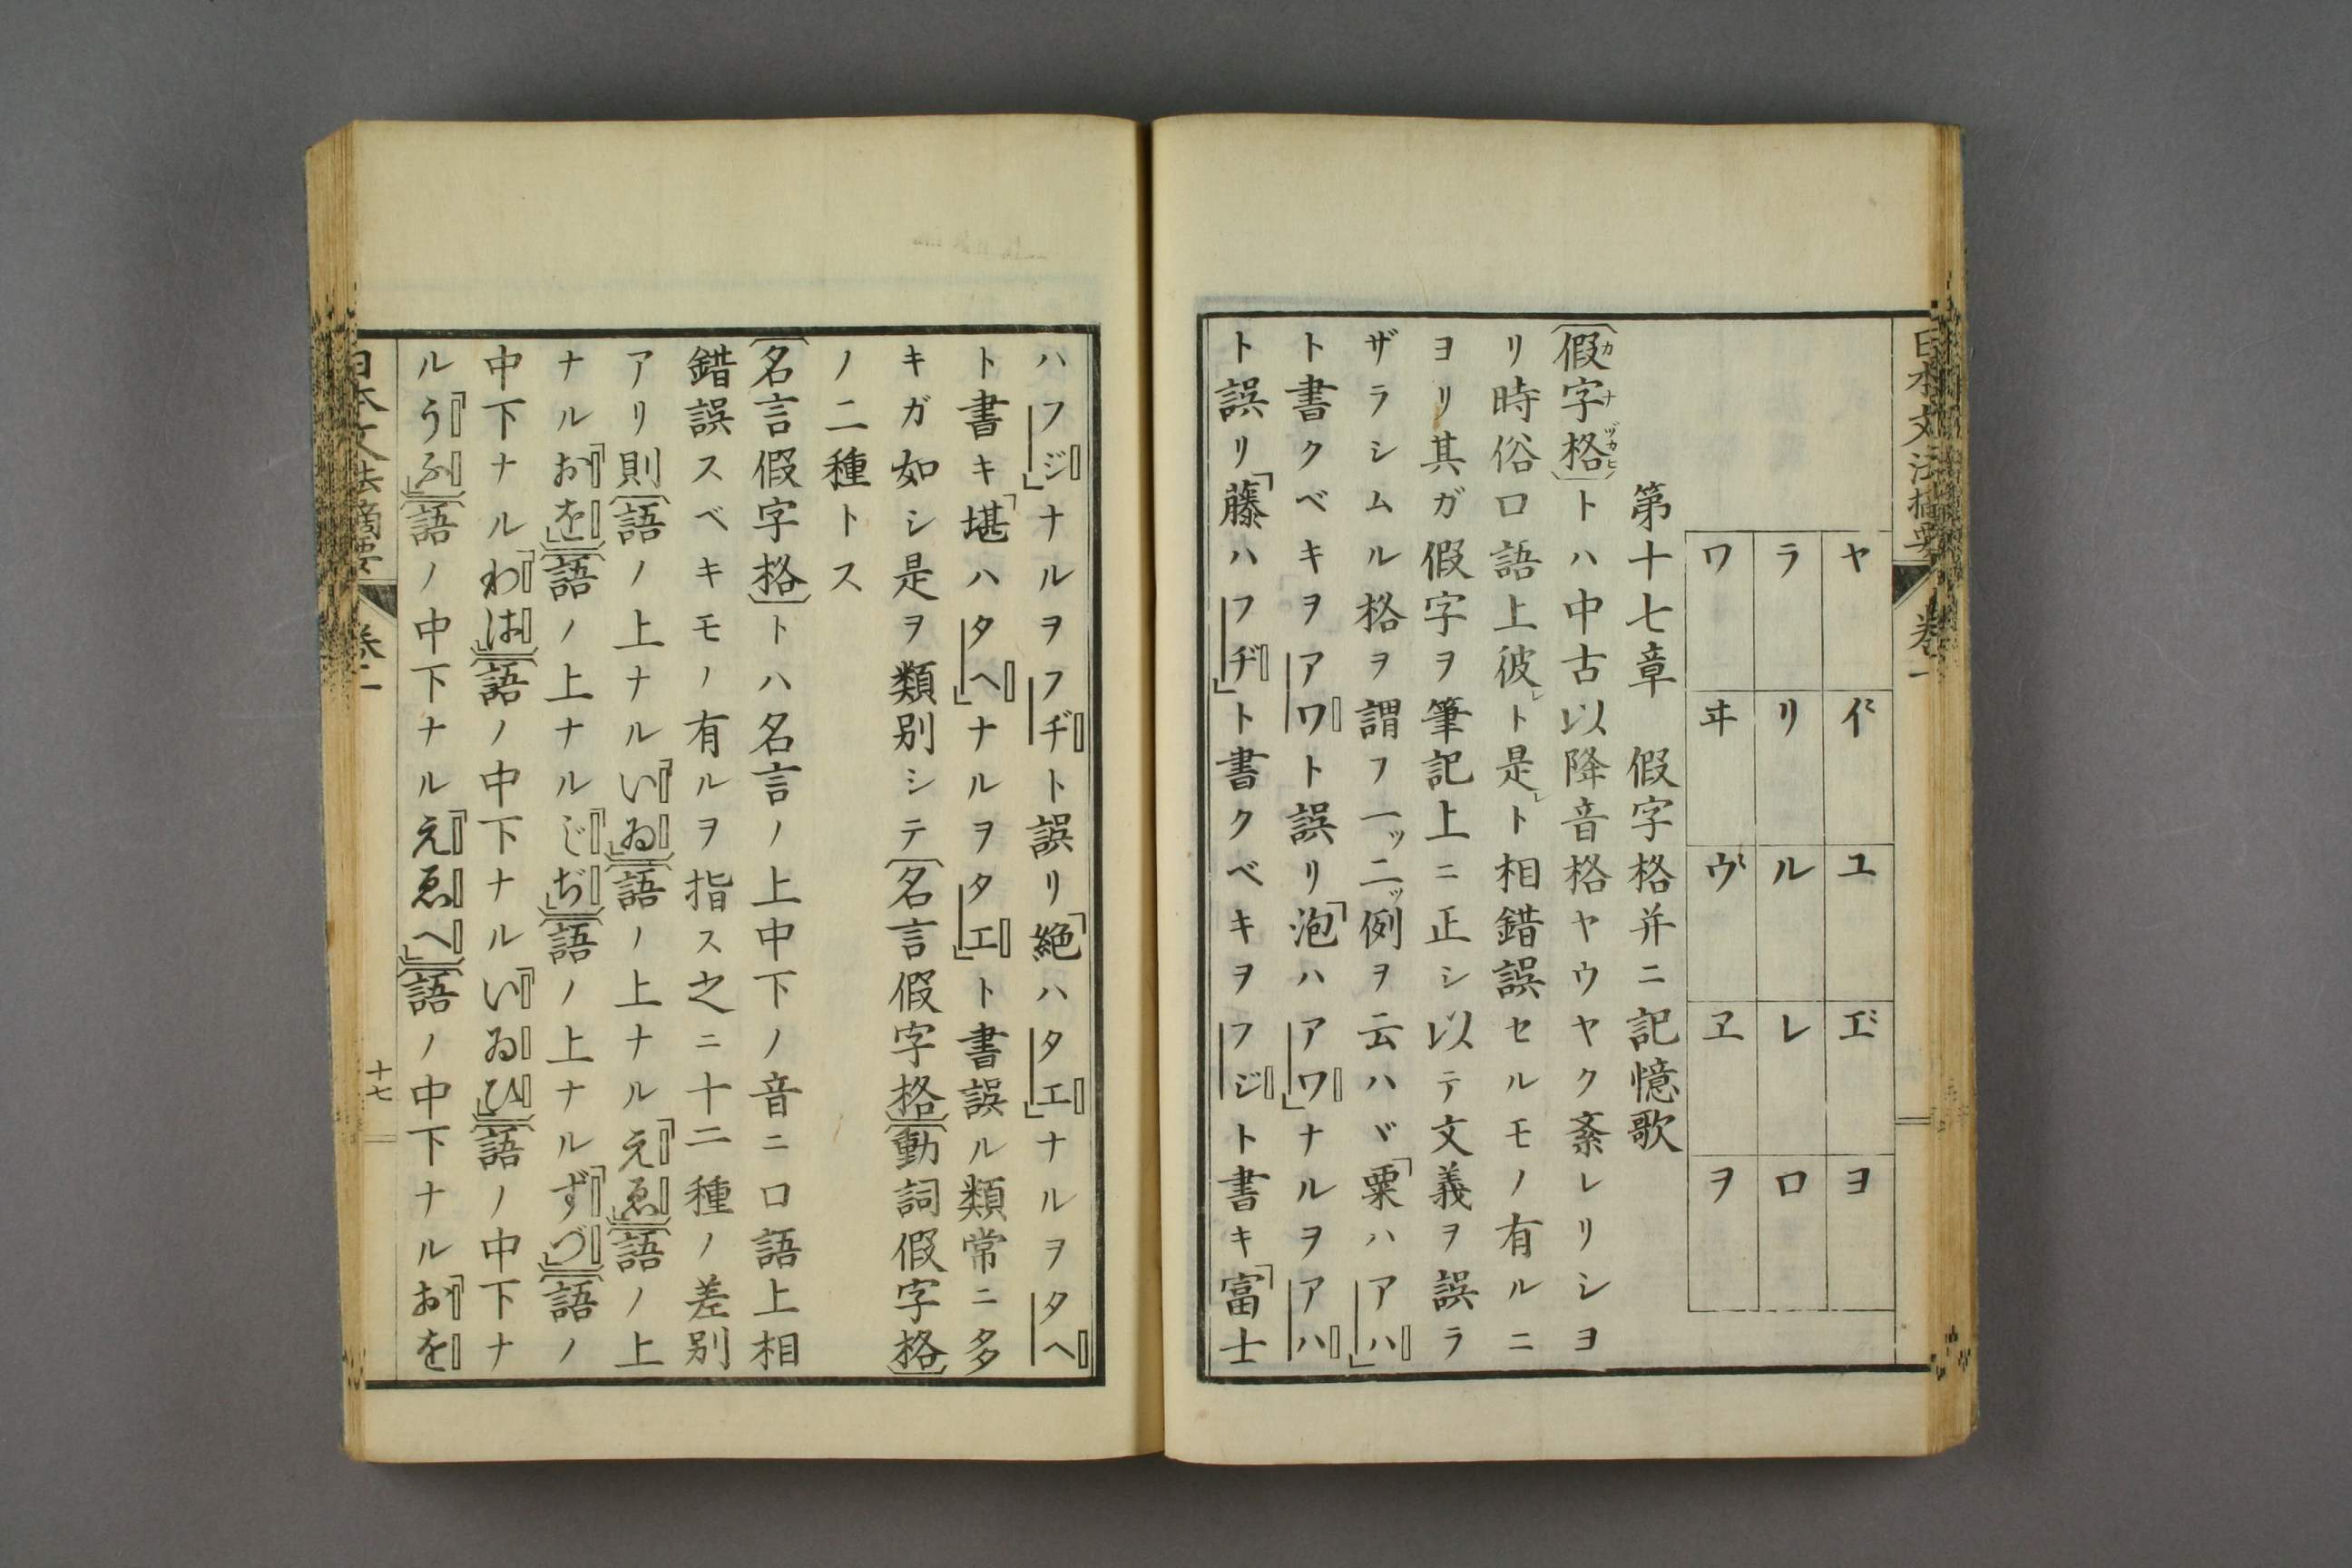 日本文法摘要
卷一
ヤ イ゙ ユ エ゙ ヨ
ラ リ ル レ ロ
ワ ヰ ウ゛ ヱ ヲ
第十七章 假字格并ニ記憶歌
〔假字格〕トハ中古以降音格ヤウヤク紊レリシヨ
カナヅカヒ
リ時俗口語上彼レト是レト相錯誤セルモノ有ルニ
ヨリ其ガ假字ヲ筆記上ニ正シ以テ文義ヲ誤ラ
ザラシムル格ヲ謂フ一ッ二ッ例ヲ云ハヾ「粟ハアハ」
ト書クベキヲアワト誤リ「泡ハアワ」ナルヲアハ
ト誤リ「藤ハフヂ」ト書クベキヲフジト書キ「富士
ハフジ」ナルヲフヂト誤リ「絶ハタエ」ナルヲタヘ
ト書キ「堪ハタヘ」ナルヲタエト書誤ル類常ニ多
キガ如シ是ヲ類別シテ〔名言假字格〕〔動詞假字格〕
ノ二種トス
〔名言假字格〕トハ名言ノ上中下ノ音ニ口語上相
錯誤スベキモノ有ルヲ指ス之ニ十二種ノ差別
アリ則〔語ノ上ナル「いゐ」〕〔語ノ上ナル「えゑ」〕〔語ノ上
ナル「おを」〕〔語ノ上ナル「じぢ」〕〔語ノ上ナル「ずづ」〕〔語ノ
中下ナル「わは」〕〔語ノ中下ナル「いゐひ」〕〔語ノ中下ナ
ル「うふ」〕〔語ノ中下ナル「えゑへ」〕〔語ノ中下ナル「おを
日本文法摘要
卷一
十七